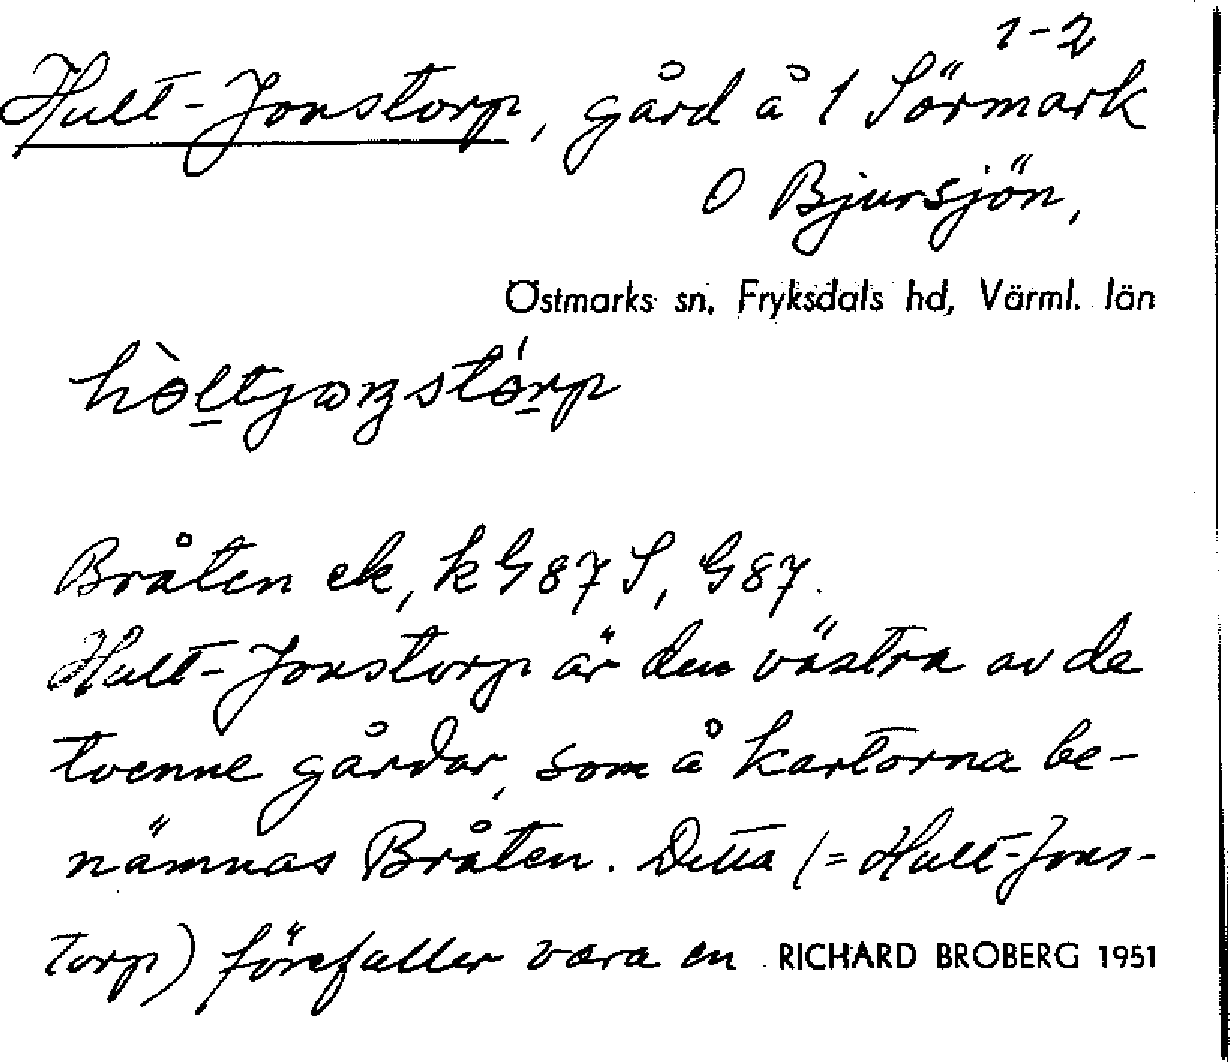 1-2
Hult-Jonstorp, gård å 1 Sörmark
O Bjursjön,
Östmarks sn, Fryksdals hd, Värml. län
Bråten ek, k G87 S, G87.
Hult-Jonstorp är den västra av de
tvenne gårdar, som å kartorna be-
nämnas Bråten. Detta (= Hult-Jons-
torp) förefaller vara en RICHARD BROBERG 1951